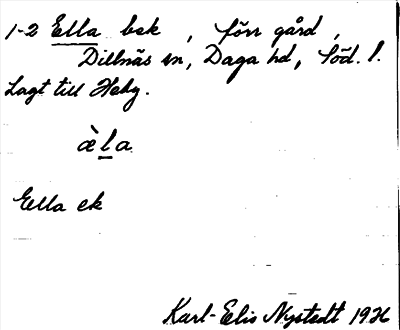 1-2 Ella bek , förr gård ,
Dillnäs sn, Daga hd, Söd. l.
Lagt till Heby.
æ̀la
Ella ek
Karl-Elis Nystedt 1936